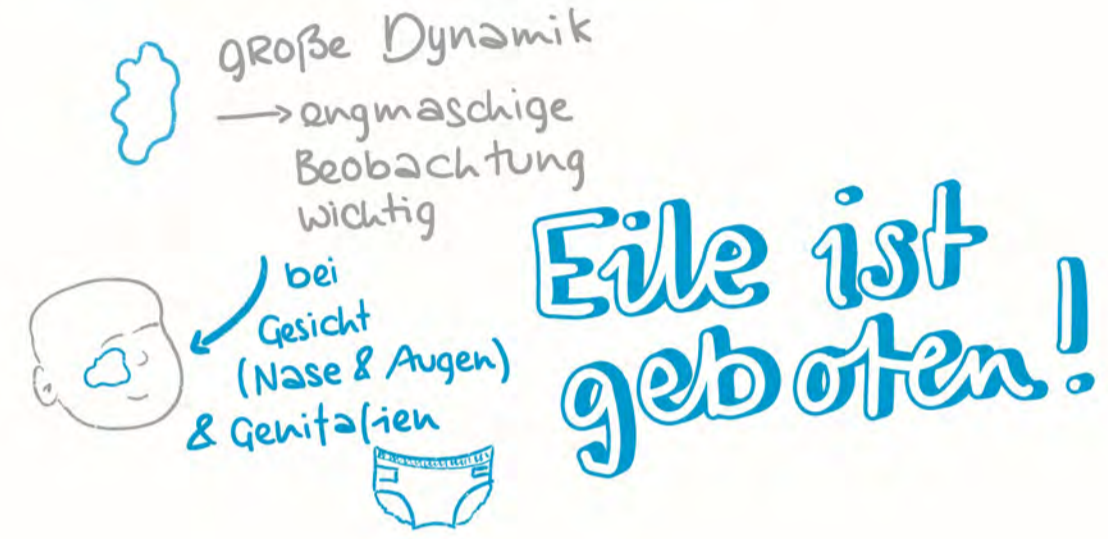 große Dynamik
→ engmaschige
Beobachtung
wichtig
bei
Gesicht
(Nase & Augen)
& Genitalien
Eile ist
geboten!